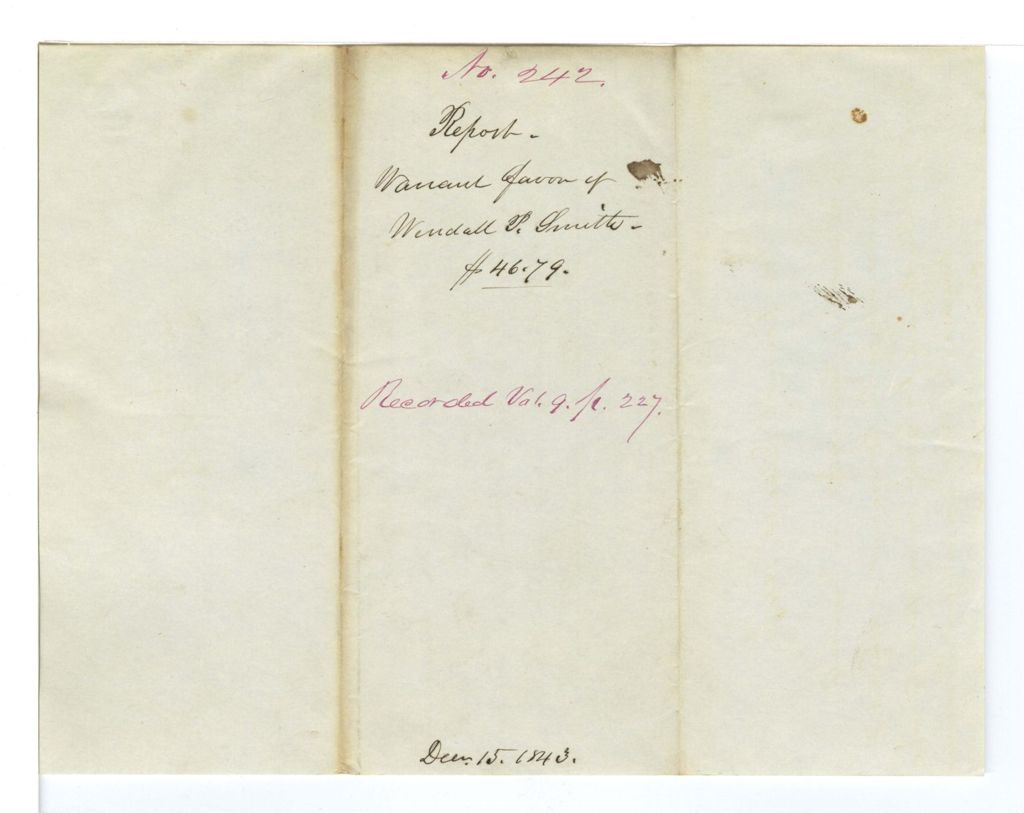 No. 242.
Report-
Warrant favor of
Wendall P. Smith-
$46.79.
Recorded Vol. 9. p. 227.
Decr. 15. 1843.